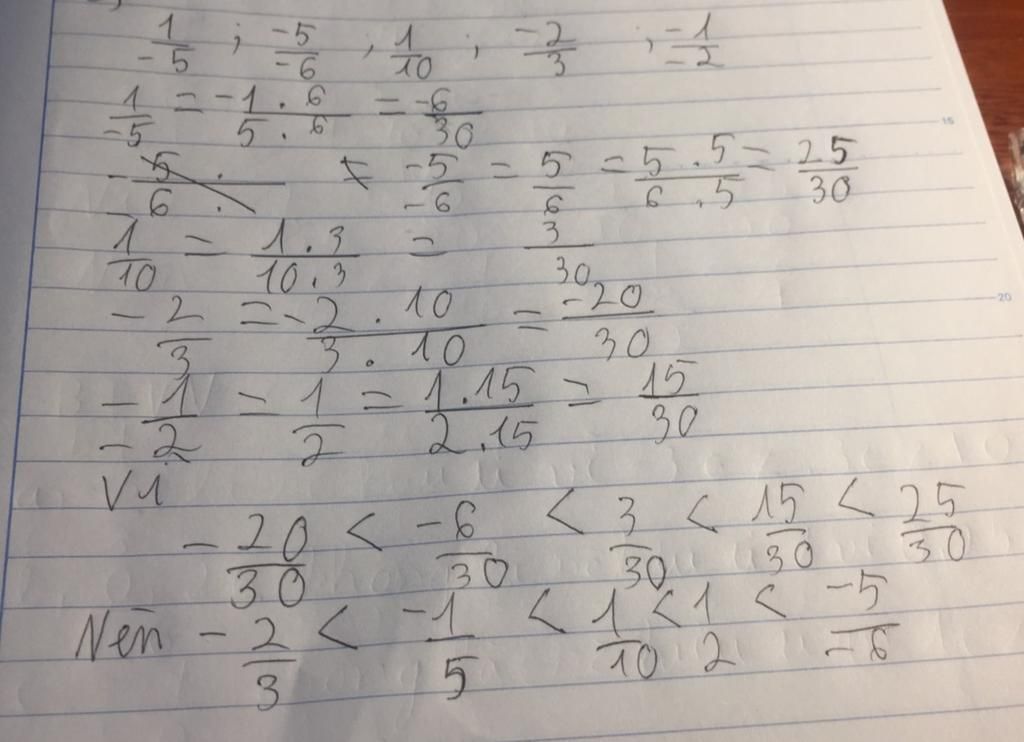 1/-5 ; -5/-6 , 1/10 ; -2/3 ; -1/-2
1/-5 = -1.6/5.6 = -6/30
-5/-6 = 5/6 = 5.5/6.5 = 25/30
1/10 = 1.3/10.3 = 3/30
-2/3 = -2.10/3.10 = -20/30
-1/-2 = 1/2 = 1.15/2.15 = 15/30
Vì
-20/30 < -6/30 < 3/30 < 15/30 < 25/30
Nên -2/3 < -1/5 < 1/10 < 1/2 < -5/-6
15
20